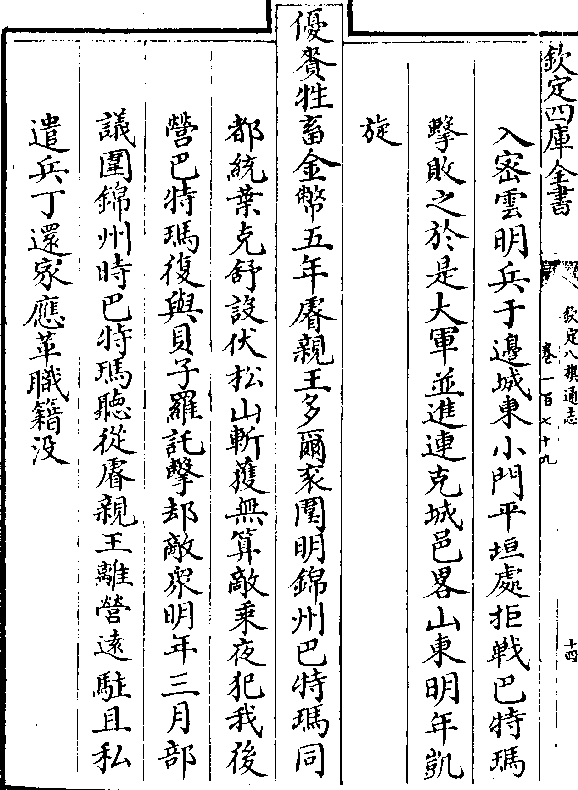 欽定四庫全書
欽定八旗通志
卷一百七十九
十四
入密雲明兵于邊城東小門平垣處拒戰巴特瑪
擊敗之於是大軍並進連克城邑畧山東明年凱
旋
優賚牲畜金幣五年睿親王多爾衮圍明錦州巴特瑪同
都統葉克舒設伏松山斬獲無算敵乘夜犯我後
營巴特瑪復與貝子羅託擊却敵衆明年三月部
議圍錦州時巴特瑪聽從睿親王離營遠駐且私
遣兵丁還家應革職籍没